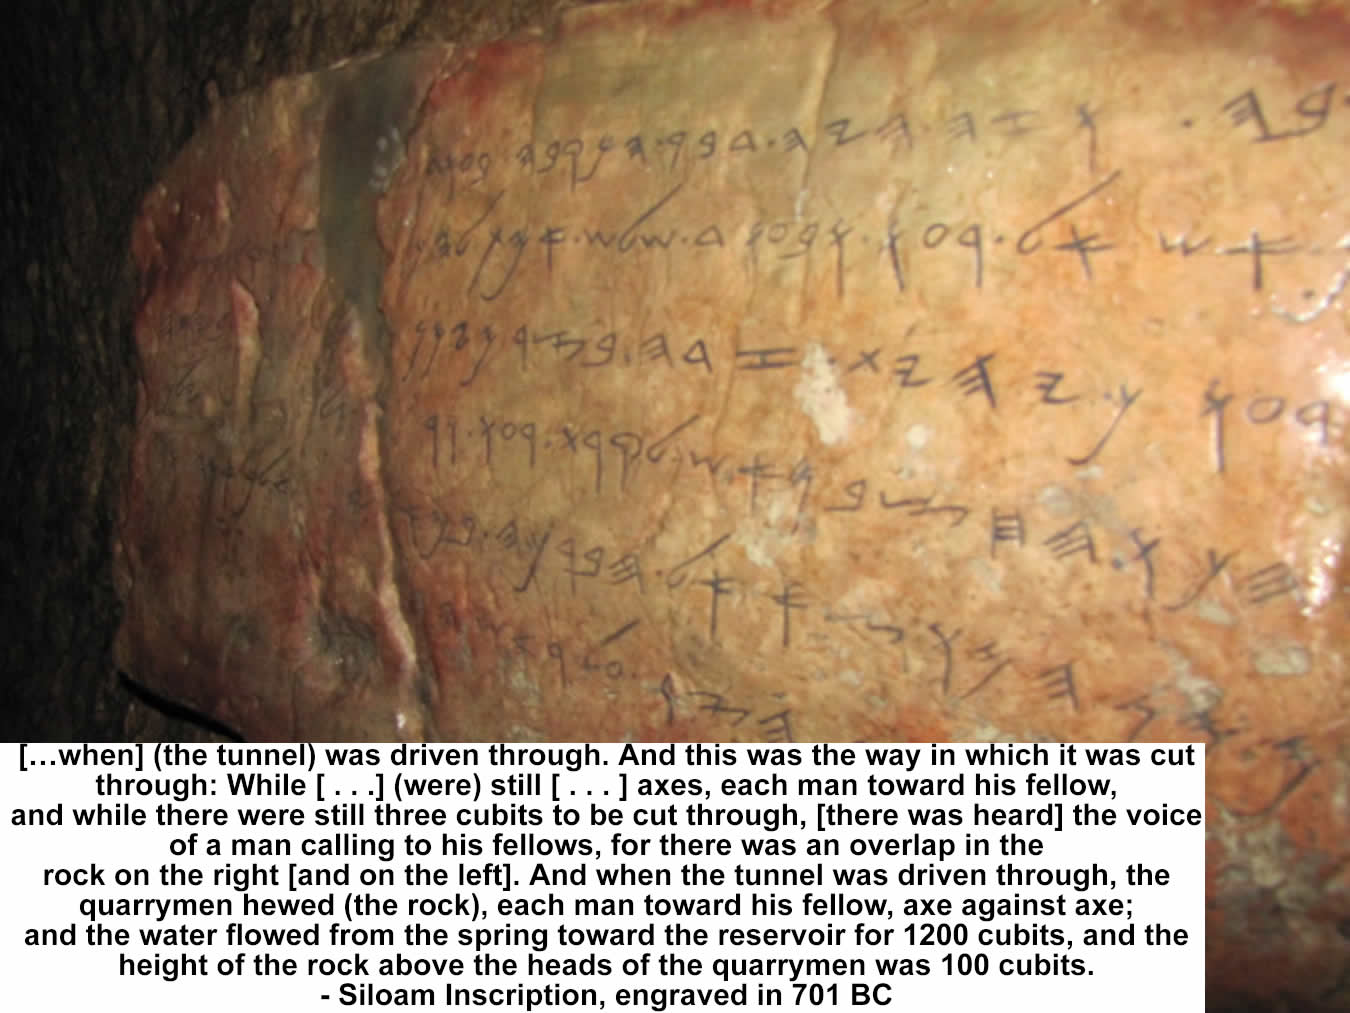 𐤅𐤆𐤄 . 𐤄𐤉𐤄 . 𐤃𐤁𐤓 . 𐤄𐤍𐤒𐤁𐤄 . 𐤁𐤏𐤅𐤃
𐤀𐤔 . 𐤀𐤋 . 𐤓𐤏𐤅 . 𐤅𐤁𐤏𐤅𐤃 . 𐤔𐤋𐤔 . 𐤀𐤌𐤕
𐤓𐤏𐤅 . 𐤊𐤉 . 𐤄𐤉𐤕 . 𐤆𐤃𐤄 . 𐤁𐤑𐤓 . 𐤌𐤉𐤌𐤍
𐤄𐤊𐤅 . 𐤄𐤇𐤑𐤁𐤌 . 𐤀𐤔 . 𐤋𐤒𐤓𐤕 . 𐤓𐤏𐤅
𐤄𐤌𐤅𐤑𐤀 . 𐤀𐤋 . 𐤄𐤁𐤓𐤊𐤄
[…when] (the tunnel) was driven through. And this was the way in which it was cut
through: While [ . . .] (were) still [ . . . ] axes, each man toward his fellow,
and while there were still three cubits to be cut through, [there was heard] the voice
of a man calling to his fellows, for there was an overlap in the
rock on the right [and on the left]. And when the tunnel was driven through, the
quarrymen hewed (the rock), each man toward his fellow, axe against axe;
and the water flowed from the spring toward the reservoir for 1200 cubits, and the
height of the rock above the heads of the quarrymen was 100 cubits.
- Siloam Inscription, engraved in 701 BC